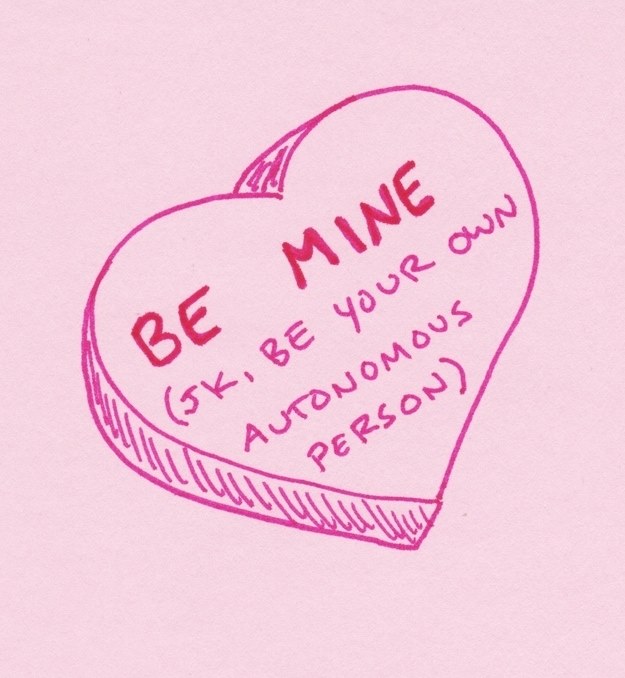 BE MINE
(JK, BE YOUR OWN
AUTONOMOUS
PERSON)